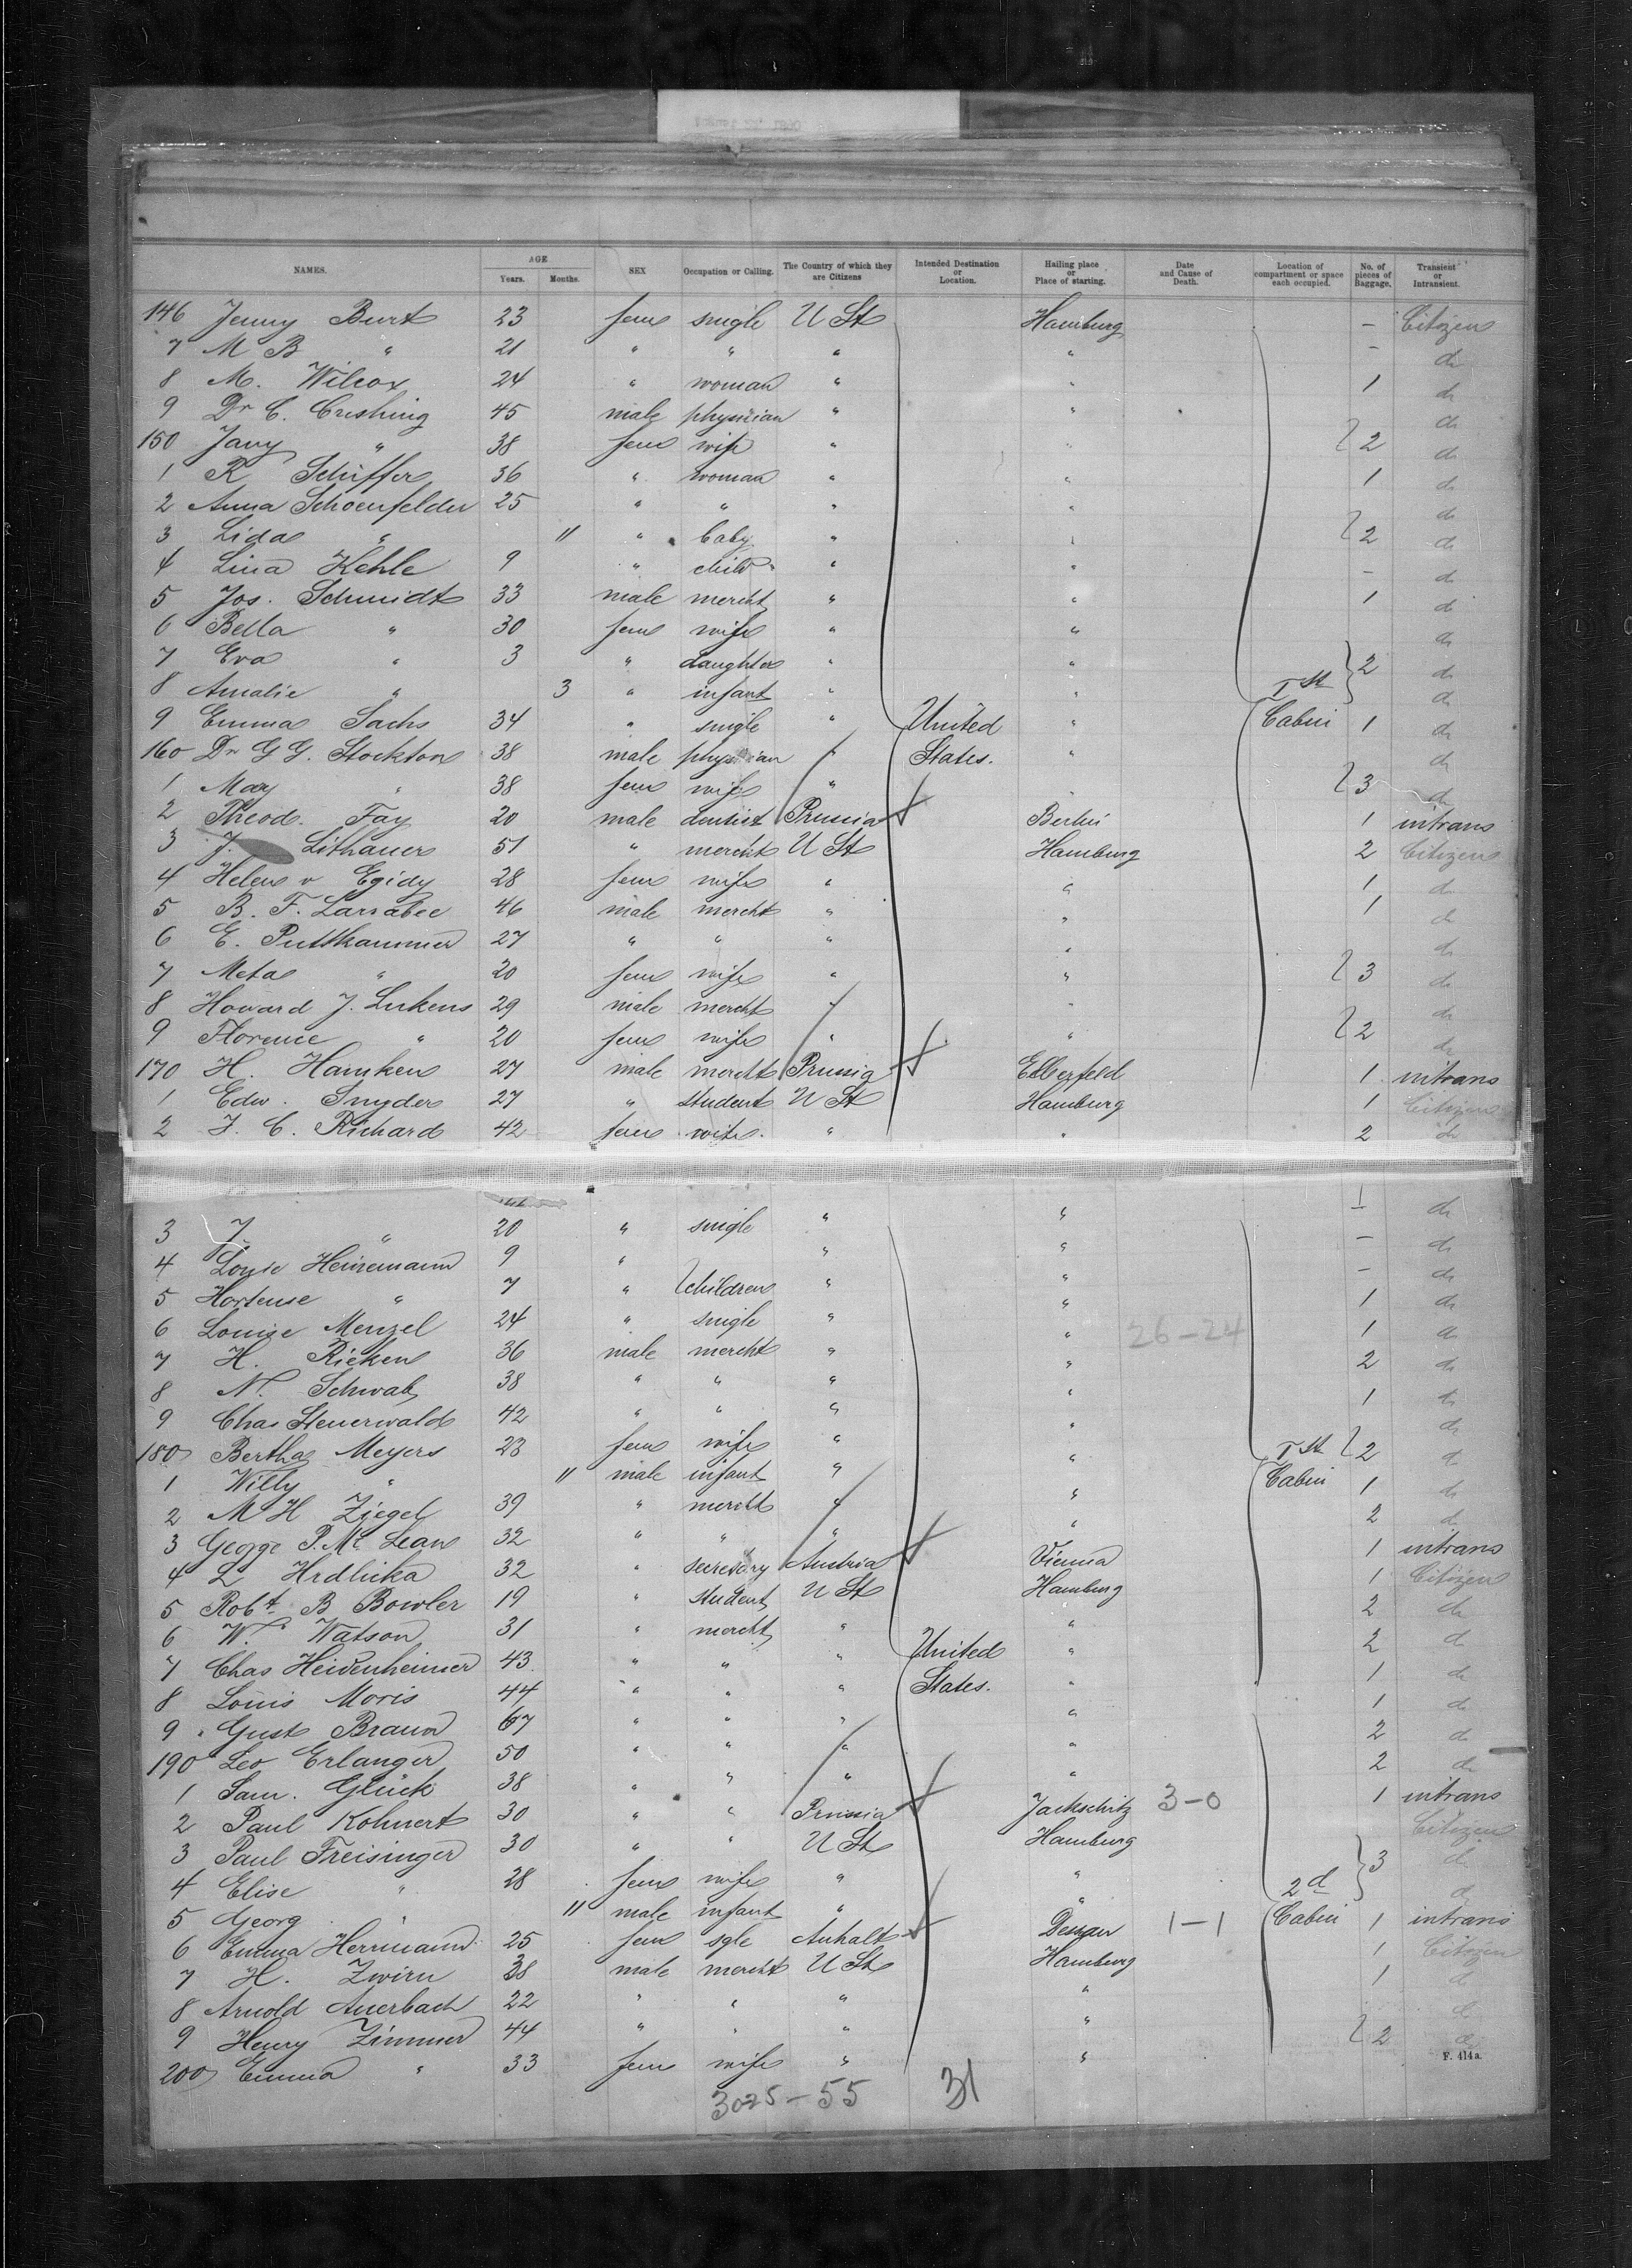 NAMES. AGE Years. Months. SEX Occupation or Calling. The Country of which they are Citizens Intended Destination or Location. Hailing place or Place of starting. Date and Cause of Death. Location of compartment or space each occupied. No. of pieces of Baggage. Transient or Intransient.
146 Jenny Burt 23 fem single U St Hamburg – Citizen
7 M B " 21 " " " " – do
8 M. Wilcox 24 " woman " " 1 do
9 Dr C. Crushing 45 male physician " " do
150 Jany " 38 fem wife " " 2 do
1 R Schiffer 36 " woman " " 1 do
2 Anna Schoenfelder 25 " " " " do
3 Lida " 11 " baby " " 2 do
4 Lina Kehle 9 " child " " – do
5 Jos. Schmidt 33 male mercht " " 1 do
6 Bella " 30 fem wife " " do
7 Eva " 3 " daughter " " 2 do
8 Amalie " 3 " infant " " Ist do
9 Emma Sachs 34 " single " United " Cabin 1 do
160 Dr G G. Stockton 38 male physician " States. " do
1 May " 38 fem wife " " 3 do
2 Theod. Fay 20 male dentist Prussia Berlin 1 intrans
3 J. Lithauer 51 " mercht U St Hamburg 2 Citizen
4 Helen v Egidy 28 fem wife " " 1 do
5 B. F. Larrabee 46 male mercht " " 1 do
6 E. Puttkammer 27 " " " " do
7 Meta " 20 fem wife " " 3 do
8 Howard J. Lukens 29 male mercht " " do
9 Florence " 20 fem wife " " 2 do
170 H. Hamken 27 male mercht Prussia Elberfeld 1 intrans
1 Edw. Snyder 27 " student U St Hamburg 1 Citizen
2 J. C. Richard 42 fem wife " " 2 do
3 J. " 20 " single " " 1 do
4 Louie Heinemann 9 " " " – do
5 Hortense " 7 " children " " – do
6 Louise Menzel 24 " single " " 1 do
7 H. Rieken 36 male mercht " " 26–24 1 do
8 N. Schwab 38 " " " " 2 do
9 Chas Steuerwald 42 " " " " 1 do
180 Bertha Meyers 23 fem wife " " Ist do
1 Willy " 11 male infant " " Cabin 2 do
2 M H Ziegel 39 " mercht " " 1 do
3 George P. Mc Lean 32 " " " " 2 do
4 L Hrdlicka 32 " secretary Austria Vienna 1 intrans
5 Robt B Bowler 19 " student U St Hamburg 1 Citizen
6 W. Watson 31 " mercht " " 2 do
7 Chas Heidenheimer 43 " " " United " 2 do
8 Louis Moris 44 " " " States. " 1 do
9 Gust Braun 67 " " " " 1 do
190 Leo Erlanger 50 " " " " 2 do
1 Sam. Glück 38 " " " " 2 do
2 Paul Kohnert 30 " " Prussia Jatkschitz 3–0 1 intrans
3 Paul Freisinger 30 " " U St Hamburg Citizen
4 Elise " 28 fem wife " " 2d 3 do
5 Georg " 11 male infant " " Cabin do
6 Emma Herrmann 25 fem sgle Anhalt Dessau 1–1 1 intrans
7 H. Zwirn 38 male mercht U St Hamburg 1 Citizen
8 Arnold Auerbach 22 " " " " 1 do
9 Henry Zimmer 44 " " " " do
200 Emma " 33 fem wife " " 2 do
F. 414a.
3025–55 31